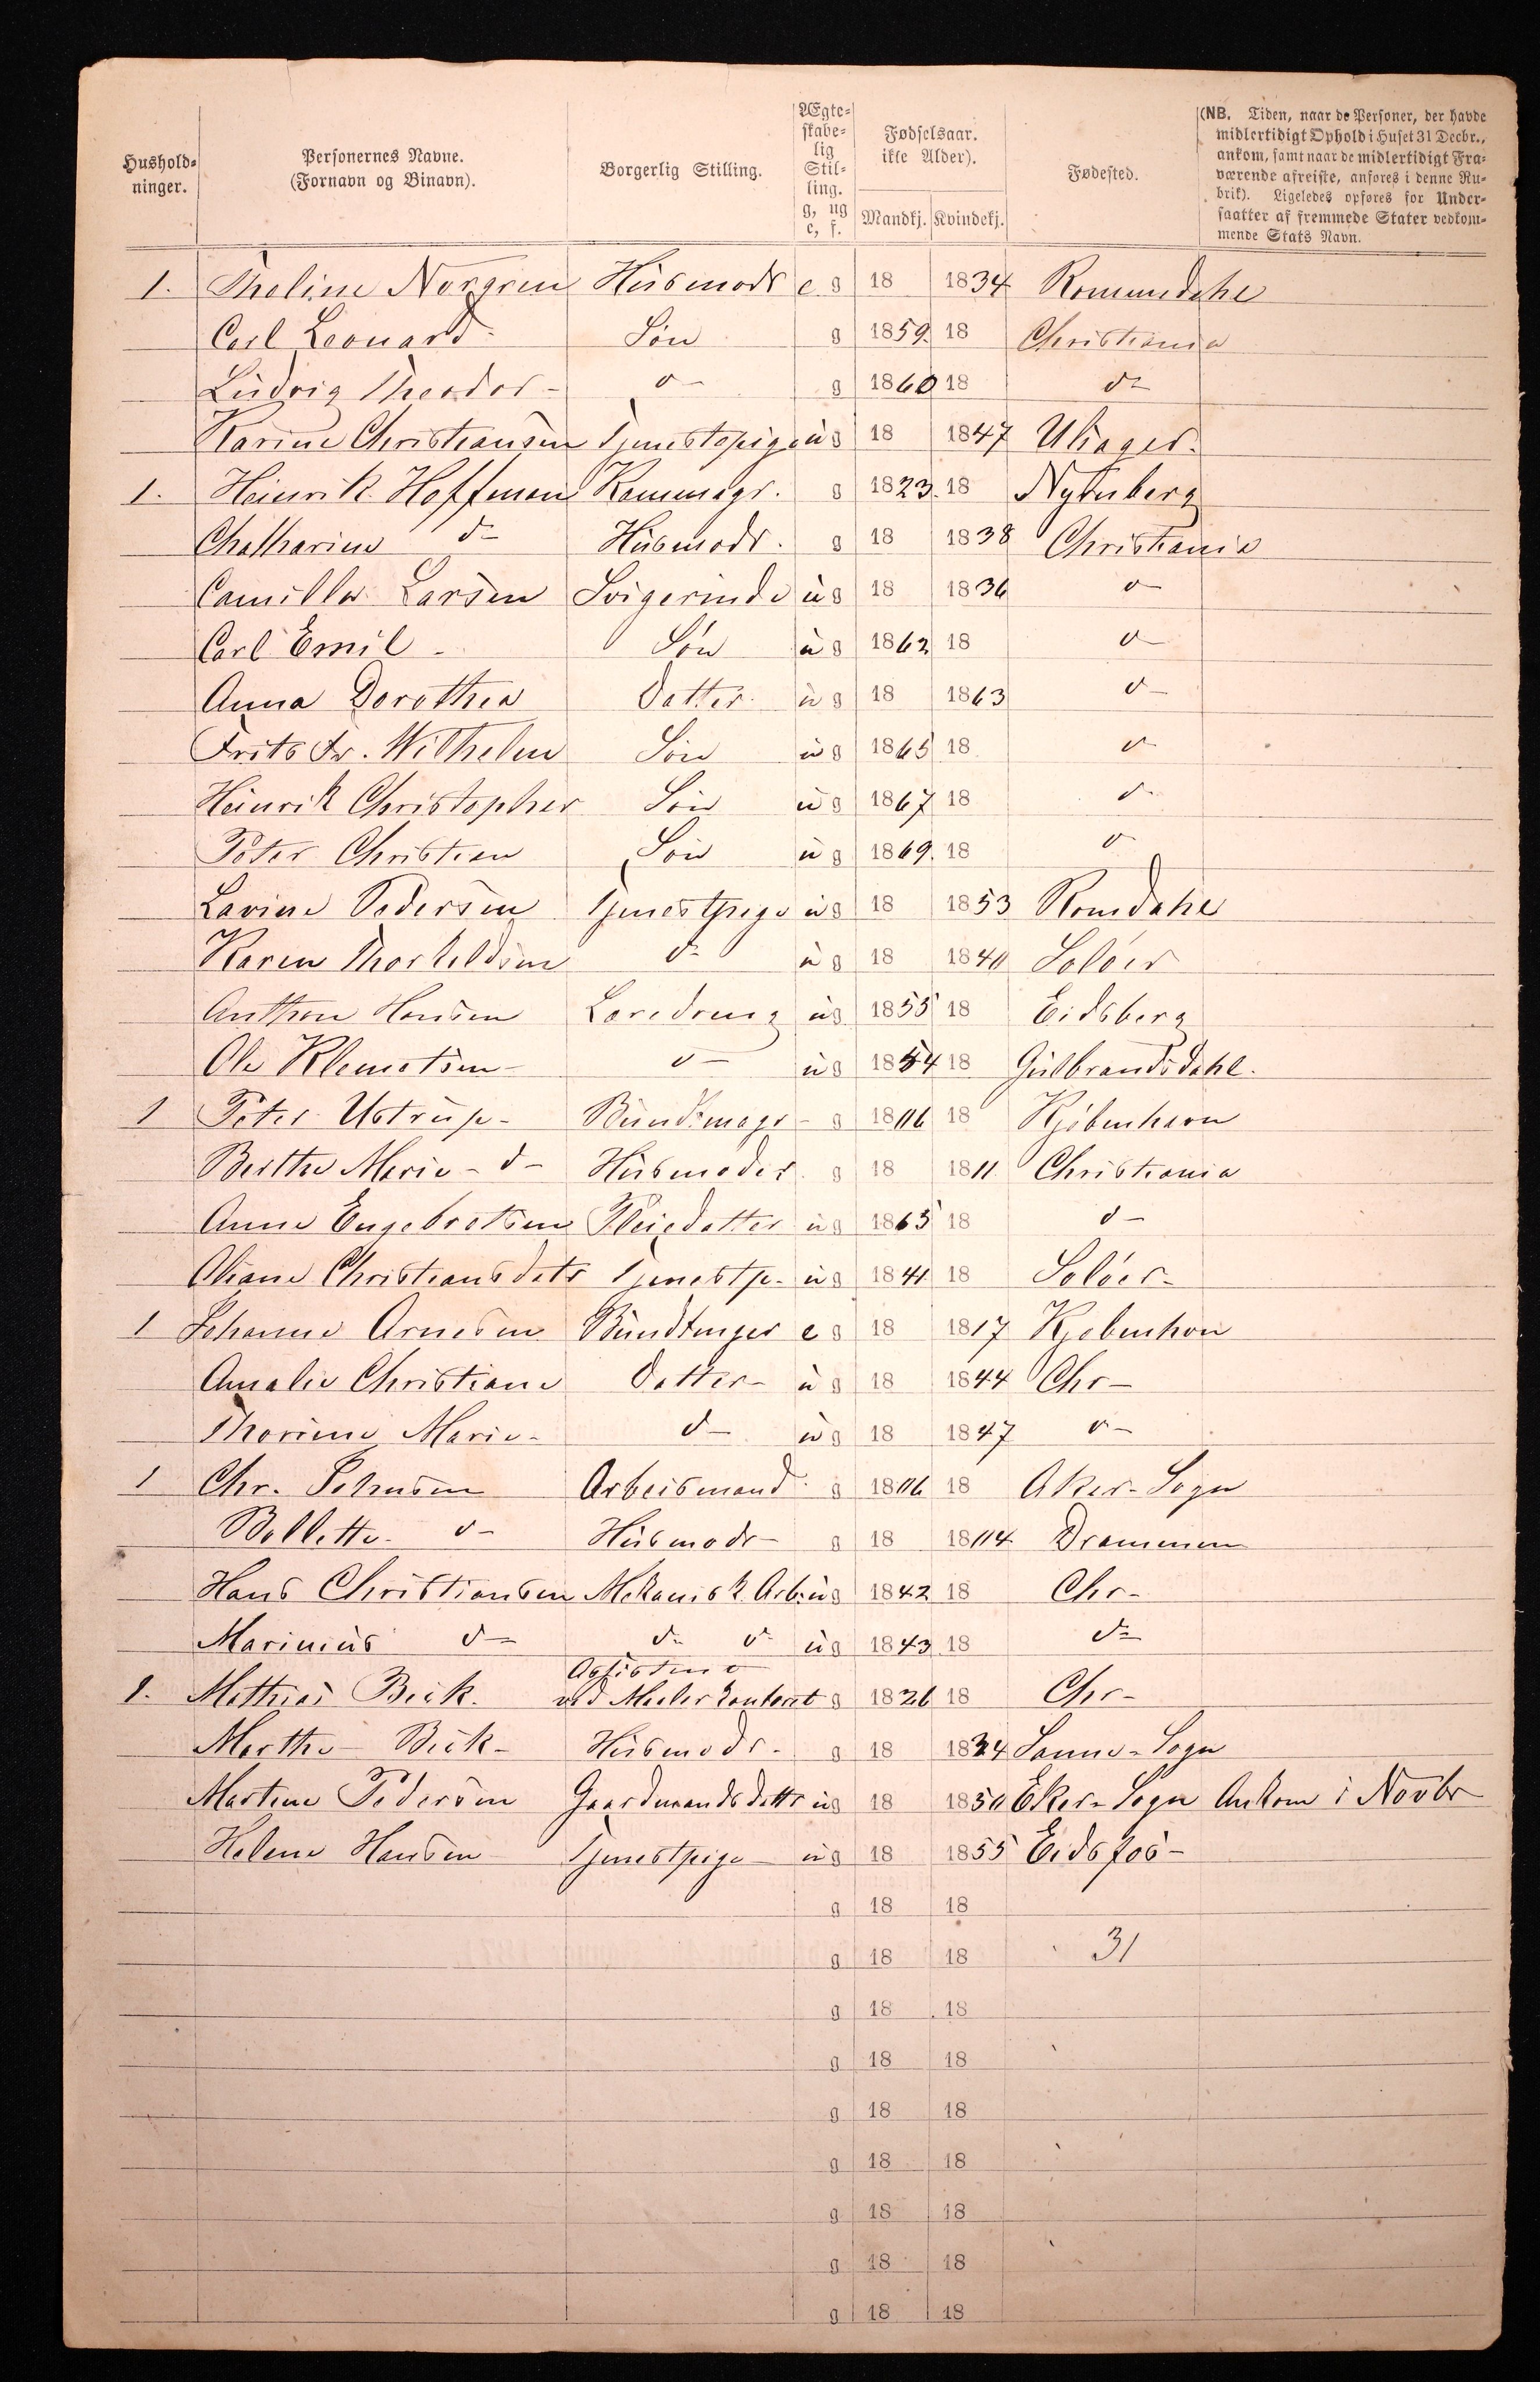 Hushold-
ninger.
Personernes Navne.
(Fornavn og Binavn).
Borgerlig Stilling.
Ægte-
skabe-
lig
Stil-
ling.
g, ug
e, f.
Fødselsaar.
ikke Alder).
Mandkj. Kvindekj.
Fødested.
(NB. Tiden, naar de Personer, der havde
midlertidigt Ophold i Huset 31 Decbr.,
ankom, samt naar de midlertidigt Fra-
værende afreiste, anføres i denne Ru-
brik). Ligeledes opføres for Under-
saatter af fremmede Stater vedkom-
mende Stats Navn.
1. Tholine Norgren Húsmodr e g 18 1834 Romundahl
Carl Leonard- Søn g 1859. 18 Christiania
Lúdvig Theodor- d- g 1860 18 d-
Karine Christiansen Tjenestepige ú g 18 1847 Ulsager.
1. Heinrik Hoffman Kammagr. g 1823. 18 Nyrnberg
Chatharine d- Húsmodr. g 18 1838 Christiania
Camilla Larsen Svigerinde ú g 18 1836 d-
Carl Emil - Søn ú g 1862 18 d-
Anna Dorothea Datter. ú g 18 1863 d-
Frits Fr. Wilhelm Søn ú g 1865 18 d-
Heinrik Christopher Søn ú g 1867 18 d-
Peter Christian Søn ú g 1869. 18 d
Lavine Pedersen Tjenestpige ú g 18 1853 Romdahl
Karen Thorkeldsen d- ú g 18 1840 Soløer
Anthon Hansen Læredreng ú g 1855 18 Eidsberg
Ole Klemetsen- d- ú g 1854 18 Gúlbrandsdahl.
1 Peter Ustrúp- Búndtmagr- g 1806 18 Kjøbenhavn
Berthe Marie - d- Húsmoder. g 18 1811 Christiania
Anne Engebretsen Pleiedatter ú g 1865 18 d-
Oliane Christiansdatr Tjenestp. ú g 1841 18 Soløer-
1 Johanne Arnesen Búndtmager e g 18 1817 Kjøbenhvn
Amalie Christiane Datter- ú g 18 1844 Chr-
Thorine Marie- d- ú g 18 1847 d-
1 Chr. Johnsen Arbeismand. g 1806 18 Aker-Sogn
Bollette- d- Húsmodr- g 18 1804 Drammen
Hans Christiansen Mekanisk Arb. ú g 1842 18 Chr-
Mariniús d- d- d- ú g 1843. 18 d-
Assistent
1. Mathias Beck. ved Meelerkontoret g 1826 18 Chr-
Marthe Beck- Húsmodr. g 18 1834 Sanne-Sogn
Martine Pedersen Gaardmandsdattr ú g 18 1850 Eker-Sogn Ankom i Novbr
Helene Hansen Tjenestpige- ú g 18 1855 Eidsfos-
g 18 18
g 18 18 31
g 18 18
g 18 18
g 18 18
g 18 18
g 18 18
g 18 18
g 18 18